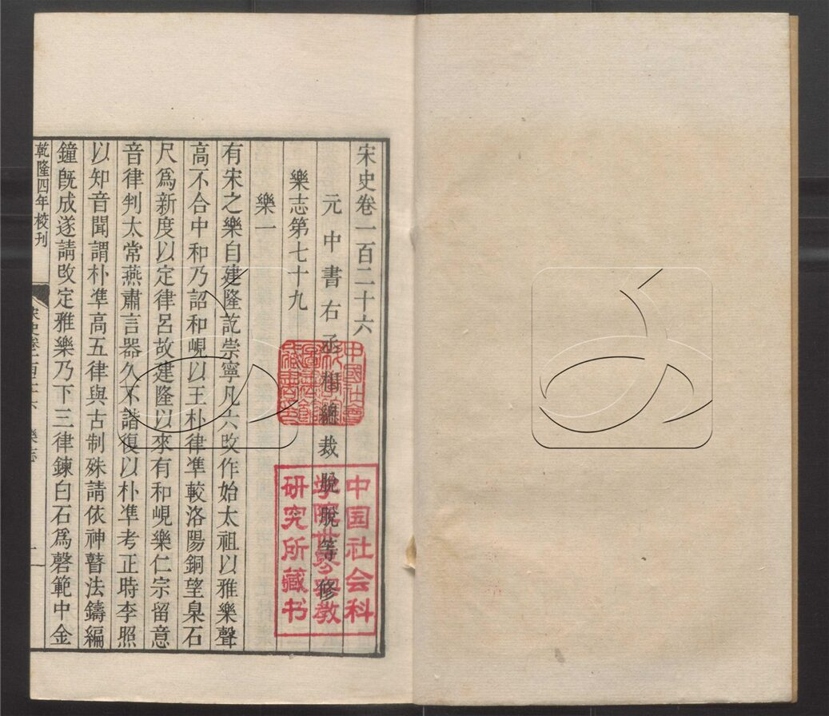 宋史卷一百二十六
元中書右丞相總裁脫脫等修
樂志第七十九
樂一
有宋之樂自建隆訖崇寧凡六改作始太祖以雅樂聲
高不合中和乃詔和峴以王朴律準較洛陽銅望臬石
尺爲新度以定律呂故建隆以來有和峴樂仁宗留意
音律判太常燕肅言器久不諧復以朴準考正時李照
以知音聞謂朴準高五律與古制殊請依神瞽法鑄編
鐘旣成遂請改定雅樂乃下三律鍊白石爲磬範中金
乾隆四年校刊
宋史卷一百二十六 樂志
一
中国社会科
学院世界宗教
研究所藏书